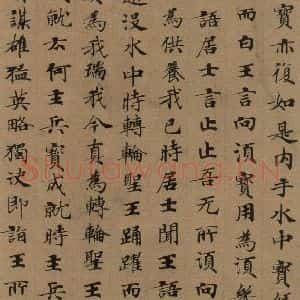 寶亦復如是手水中寶
而白王言向須寶用為須
語居士言止止吾无所須向
為供養我已時居士聞王語
沒水中時轉輪聖王踊躍而
為我瑞我今真為轉輪聖王
就云何主兵寶成就時主兵
謀雄猛英略獨決即詣王所
Shufawang.cn